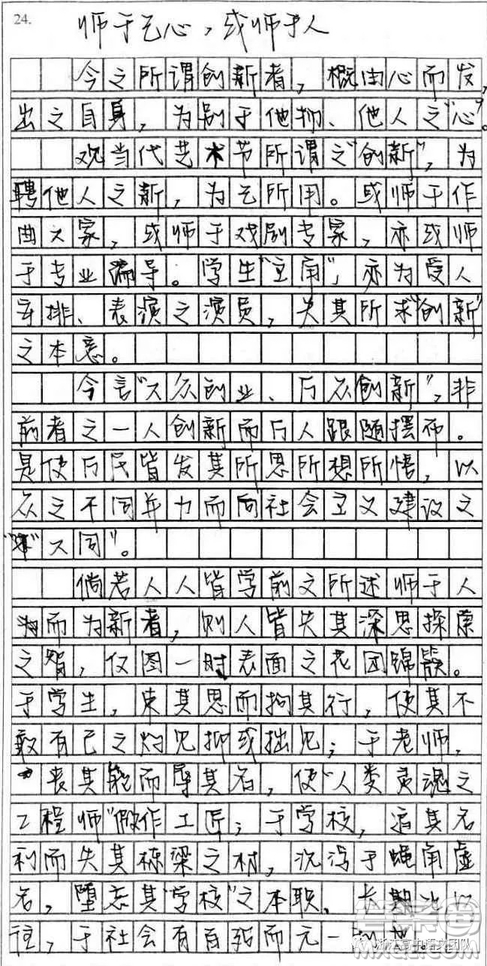 24.
师于己心，或师于人
今之所谓创新者，概由心而发，
出之自身，为别于他物、他人之“心”
观当代艺术节所谓之“创新”，为
聘他人之新，为己所用。或师于作
曲大家，或师于戏剧专家，亦或师
于专业编导。学生“主角”，亦为受人
安排、表演之演员，失其所求“创新”
之本意。
今言“大众创业、万众创新”，非
前者之一人创新而万人跟随摆布。
是使万民皆发其所思所想所悟，以
众之不同年力而向社会主义建设之
“大同”。
倘若人人皆学前文所述师于人
而为新者，则人皆失其深思探索
之智，仅图一时表面之花团锦簇。
于学生，束其思而拘其行，使其不
敢有己之灼见抑或拙见；于老师，
丧其能而辱其名，使“人类灵魂之
工程师”假作工匠；于学校，追其名
利而失其栋梁之材，沉浮于蝇角虚
名，堕忘其“学校”之本职。长期此以
往，于社会有百弊而无一